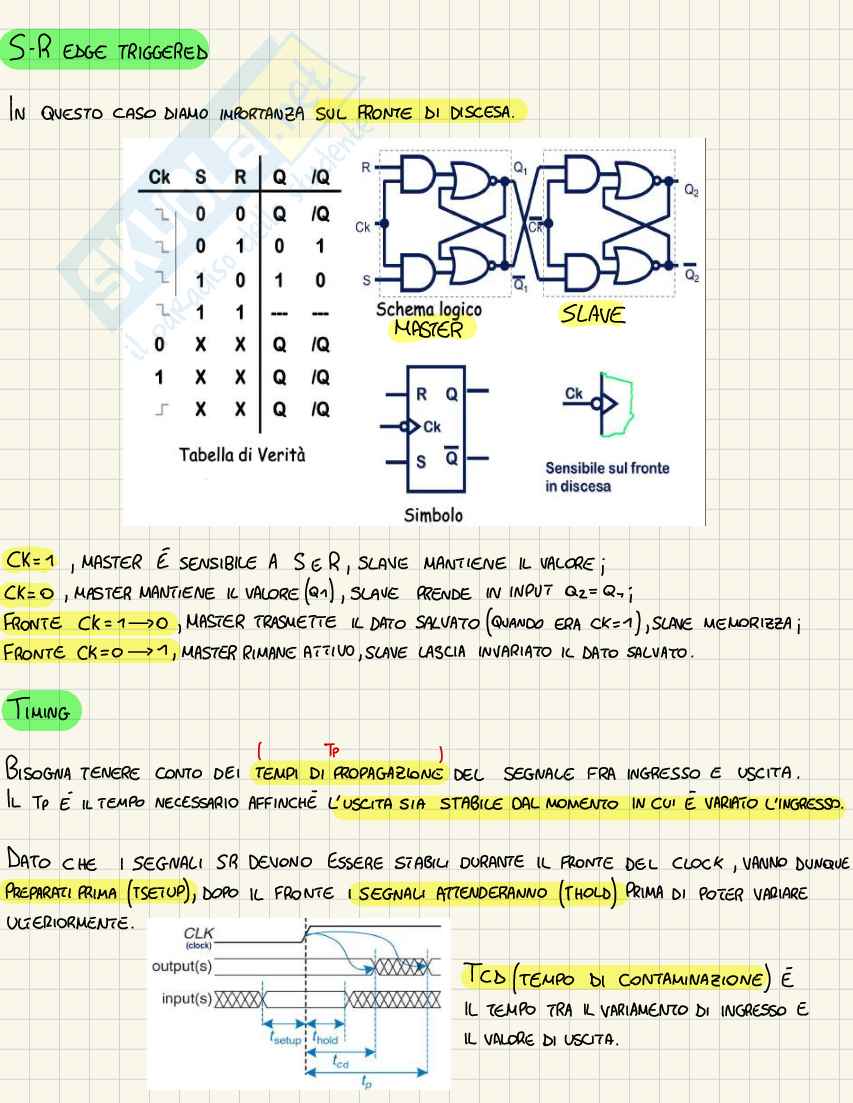 S-R EDGE TRIGGERED
IN QUESTO CASO DIAMO IMPORTANZA SUL FRONTE DI DISCESA.
Ck S R Q /Q
0 0 Q /Q
0 1 0 1
1 0 1 0
1 1 --- ---
0 X X Q /Q
1 X X Q /Q
X X Q /Q
Tabella di Verità
R Q1 Q2
Ck Ck
S Q1 Q2
Schema logico
MASTER SLAVE
R Q
Ck
S Q
Simbolo
Ck
Sensibile sul fronte
in discesa
SKUOLA.net
il paradiso dello studente
CK=1, MASTER É SENSIBILE A S E R, SLAVE MANTIENE IL VALORE;
CK=0, MASTER MANTIENE IL VALORE (Q1), SLAVE PRENDE IN INPUT Q2=Q1;
FRONTE CK=1→0, MASTER TRASMETTE IL DATO SALVATO (QUANDO ERA CK=1), SLAVE MEMORIZZA;
FRONTE CK=0→1, MASTER RIMANE ATTIVO, SLAVE LASCIA INVARIATO IL DATO SALVATO.
TIMING
( TP )
BISOGNA TENERE CONTO DEI TEMPI DI PROPAGAZIONE DEL SEGNALE FRA INGRESSO E USCITA.
IL TP É IL TEMPO NECESSARIO AFFINCHÉ L'USCITA SIA STABILE DAL MOMENTO IN CUI É VARIATO L'INGRESSO.
DATO CHE I SEGNALI SR DEVONO ESSERE STABILI DURANTE IL FRONTE DEL CLOCK, VANNO DUNQUE
PREPARATI PRIMA (TSETUP), DOPO IL FRONTE I SEGNALI ATTENDERANNO (THOLD) PRIMA DI POTER VARIARE
ULTERIORMENTE.
CLK
(clock)
output(s)
input(s)
tsetup thold
tcd
tp
TCD (TEMPO DI CONTAMINAZIONE) É
IL TEMPO TRA IL VARIAMENTO DI INGRESSO E
IL VALORE DI USCITA.